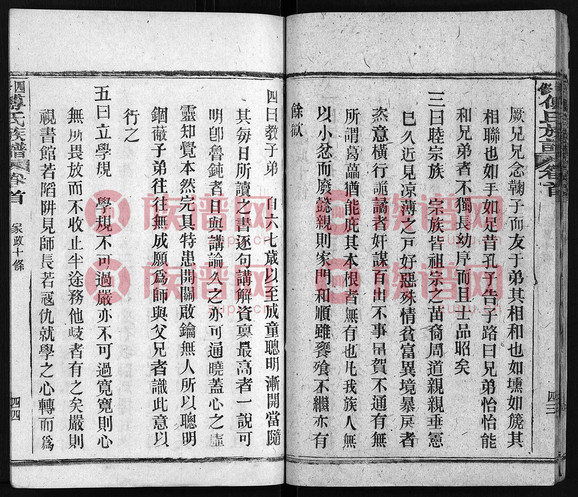 厥兄兄念鞠子而友于弟其相和也如壎如篪其
相聯也如手如足昔孔子告子路曰兄弟怡怡能
和兄弟者不獨長幼序而且士品昭矣
三曰睦宗族 宗族皆祖宗之苗裔周道親親垂憲
已久近見凉薄之戶好惡殊情貧富異境暴戾者
恣意橫行詭譎者奸謀百出不事弔賀不通有無
所謂葛藟猶能庇其本根者無有也凡我族人無
以小忿而廢懿親則家門和順雖饔飧不繼亦有
餘歡
四曰教子弟 自六七歲以至成童聰明漸開當隨
其每日所讀之書逐句講解資禀最高者一說可
明卽魯鈍者日與講論久之亦可通曉蓋心之虛
靈知覺本然完具特患開關啟鑰無人所以聰明
錮蔽子弟往往無成願爲師與父兄者識此意以
行之
五曰立學規 學規不可過嚴亦不可過寬寬則心
無所畏放而不收止半途務他歧者有之矣嚴則
視書館若陷阱見師長若寇仇就學之心轉而爲
傅氏族譜
卷首
家政十條
四三
四四
族谱网
zupu.cn